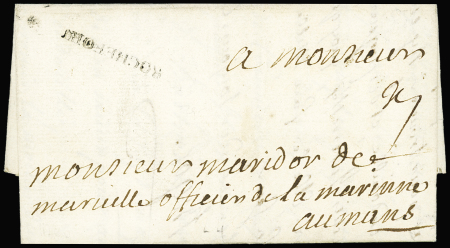 ROCHEFORT
a monsieur
monsieur maridor de
marville officier de la marinne
au mans